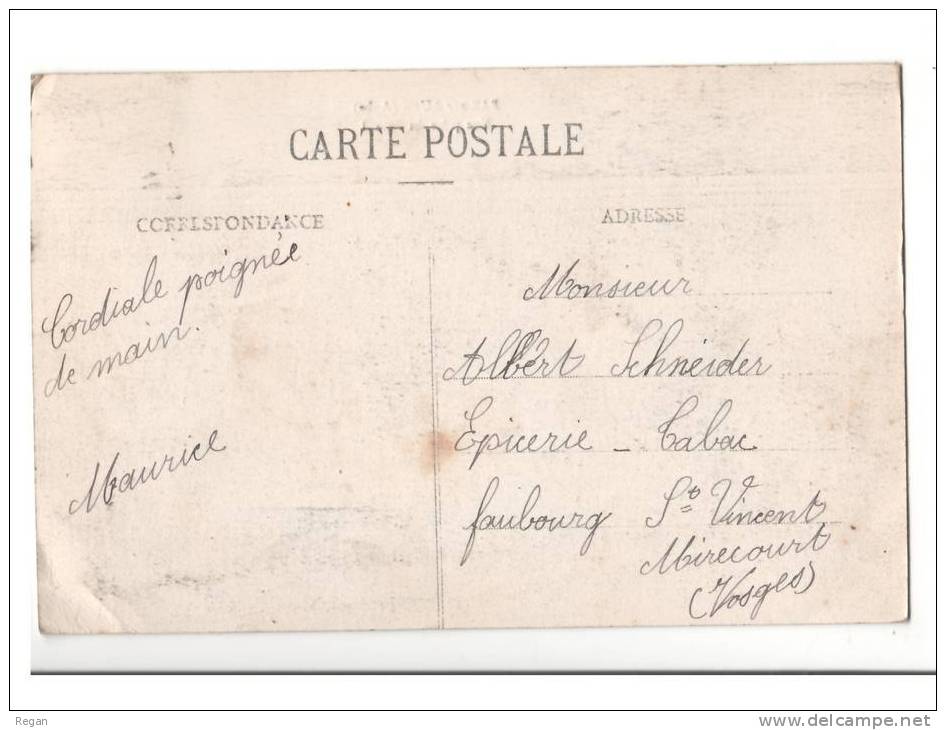 CARTE POSTALE
CORRESPONDANCE
Cordiale poignée
de main.
Maurice
ADRESSE
Monsieur
Albert Schneider
Epicerie - Tabac
faubourg St Vincent
Mirecourt
(Vosges)
Regan
delcampe.net